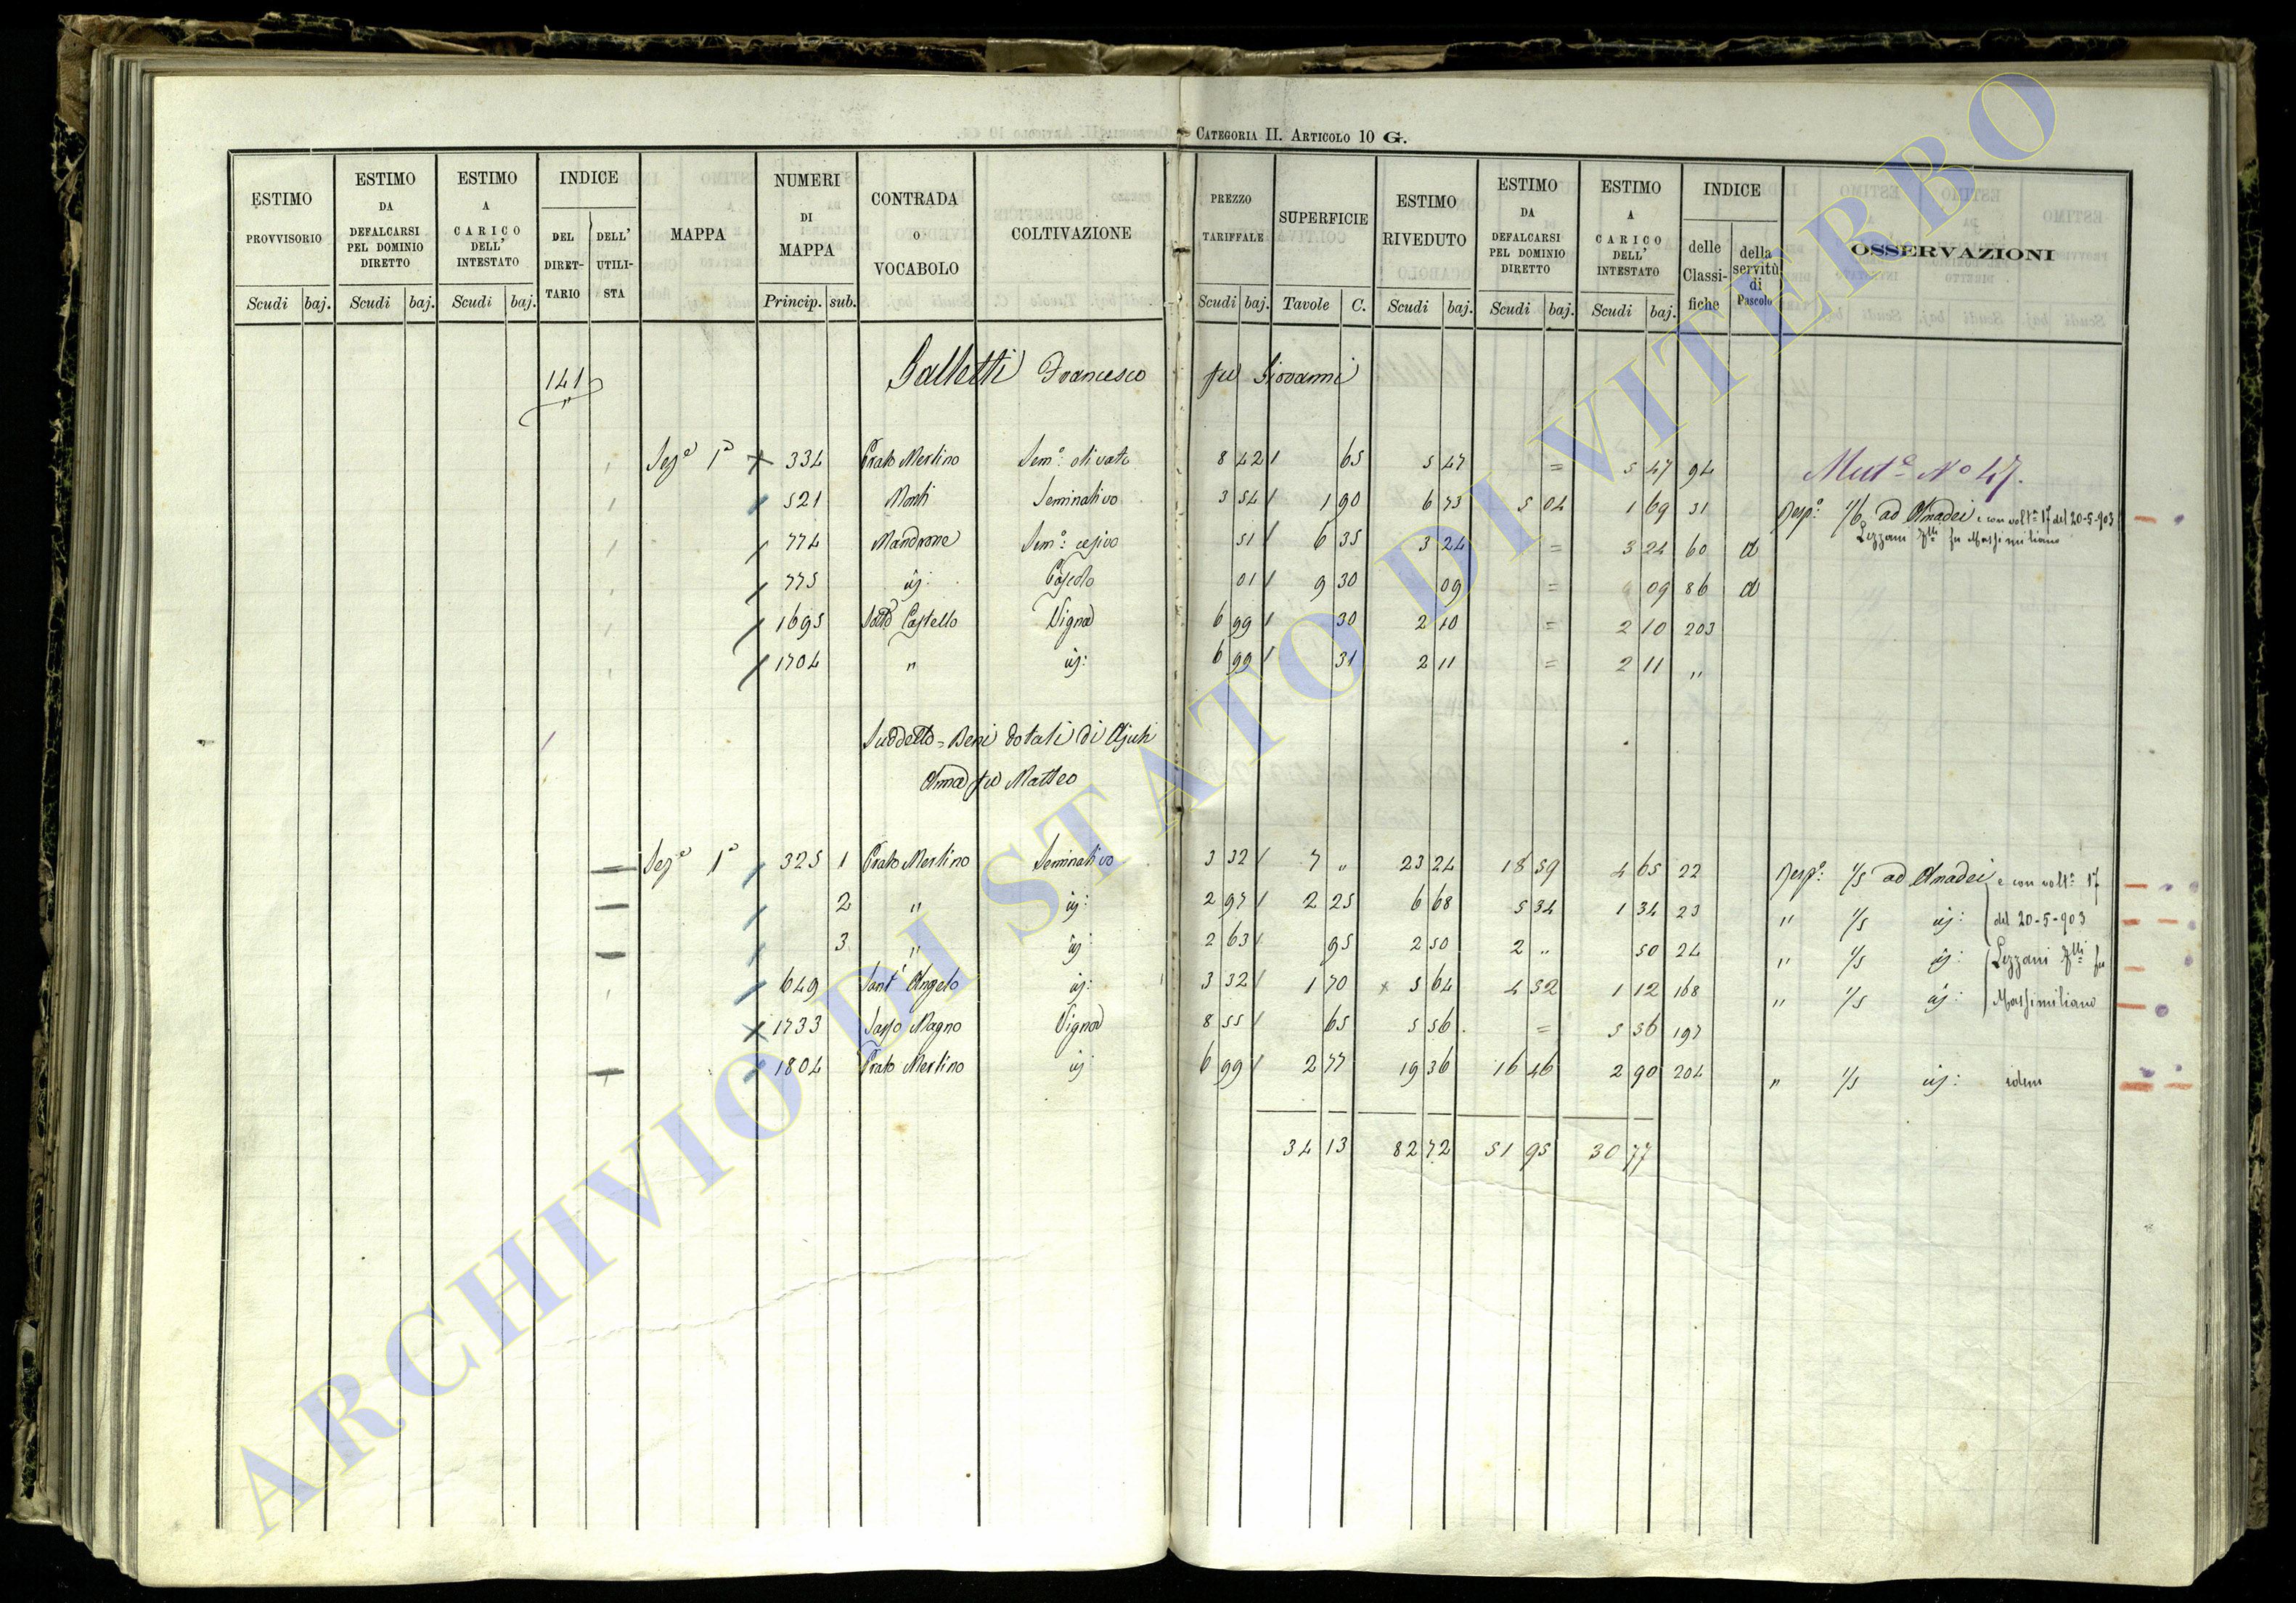 CATEGORIA II. ARTICOLO 10 G.
ESTIMO PROVVISORIO Scudi baj.
ESTIMO DA DEFALCARSI PEL DOMINIO DIRETTO Scudi baj.
ESTIMO A CARICO DELL' INTESTATO Scudi baj.
INDICE DEL DIRET-TARIO DELL' UTILI-STA
MAPPA
NUMERI DI MAPPA Princip. sub.
CONTRADA O VOCABOLO
COLTIVAZIONE
PREZZO TARIFFALE Scudi baj.
SUPERFICIE Tavole C.
ESTIMO RIVEDUTO Scudi baj.
ESTIMO DA DEFALCARSI PEL DOMINIO DIRETTO Scudi baj.
ESTIMO A CARICO DELL' INTESTATO Scudi baj.
INDICE delle Classi-fiche della servitù di Pascolo
OSSERVAZIONI
141 Galletti Francesco fu Giovanni
Sez.e 1a 334 Prato Merlino Sem.o olivato 8 42 65 5 47 = 5 47 94 Mut.e No 47.
521 Monti Seminativo 3 54 1 90 6 73 5 04 1 69 31 Resp.e 1/6 ad Amadei e con volt.a 17 del 20-5-903
Lezzani F.lli fu Massimiliano
774 Mandrone Sem.o cesivo 51 6 35 3 24 = 3 24 60 d
775 id: Pascolo 01 9 30 09 = 09 86 d
1695 Sotto Castello Vigna 6 99 30 2 10 = 2 10 203
1704 " id: 6 99 31 2 11 = 2 11 "
Suddetto = Beni dotali di Ajuti
Anna fu Matteo
Sez.e 1a 325 1 Prato Merlino Seminativo 3 32 7 " 23 24 18 59 4 65 22 Resp.e 1/5 ad Amadei e con volt.a 17
2 " id: 2 97 2 25 6 68 5 34 1 34 23 " 1/5 id: del 20-5-903
3 " id: 2 63 95 2 50 2 " 50 24 " 1/5 id: Lezzani F.lli fu
649 Sant' Angelo id: 3 32 1 70 5 64 4 52 1 12 168 " 1/5 id: Massimiliano
1733 Sasso Magno Vigna 8 55 65 5 56 = 5 56 197
1804 Prato Merlino id 6 99 2 77 19 36 16 46 2 90 204 " 1/5 id: idem
34 13 82 72 51 95 30 77
ARCHIVIO DI STATO DI VITERBO